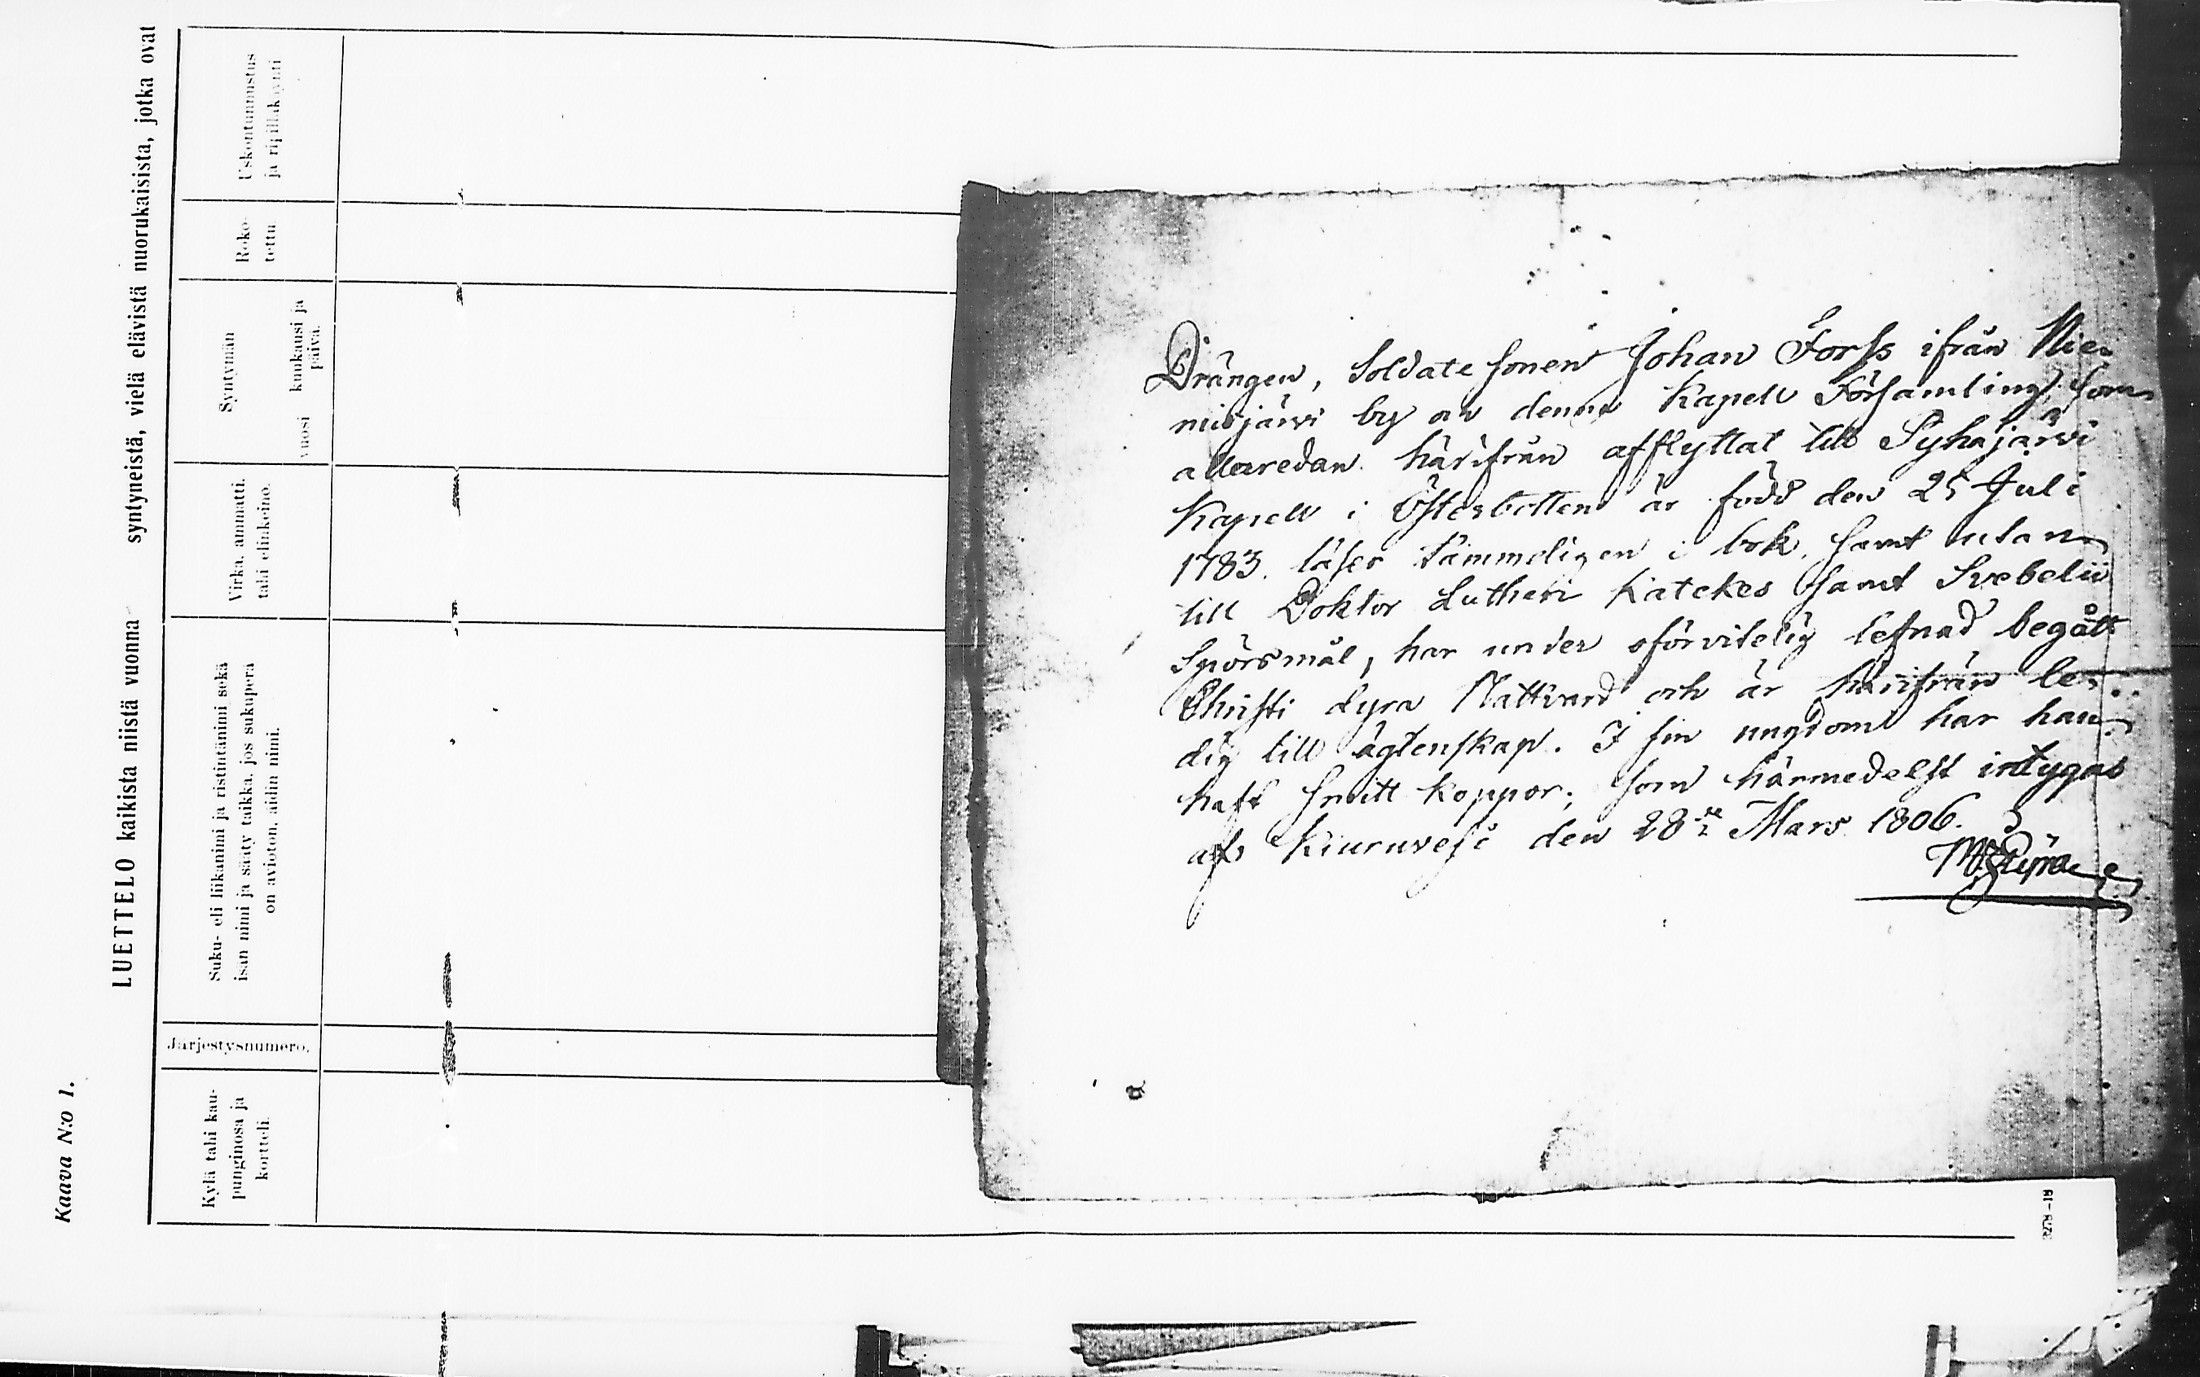 Kaava N:o 1.
LUETTELO kaikista niistä vuonna syntyneistä, vielä elävistä nuorukaisista, jotka ovat
Kylä tahi kau-
punginosa ja
kortteli.
Järjestysnumero.
Suku- eli liikanimi ja ristintänimi sekä
isän nimi ja sääty taikka, jos sukuperä
on avioton, äidin nimi.
Virka, ammatti,
tahi elinkeino.
Syntymän
vuosi
kuukausi ja
päivä.
Roko-
tettu.
Uskontunnustus
ja ripilläkäynti
Drängen, Soldate sonen Johan Forss ifrån Nie-
misjärvi by av denna Kapell Församling, som
allaredan härifrån afflyttat till Pyhäjärvi
Kapell i Österbotten är född den 25 Juli
1783. läser tämmeligen i bok, samt utan
till Doktor Lutheri Katekes samt Svebelii
Spörsmål, har under oförvitelig lefnad begått
Christi dyra Nattvard och är härifrån le-
dig till ägtenskap. I sin ungdom har han
haft smitt koppor; som härmedelst intygas
af Kiuruvesi den 28 Mars 1806.
3278 -18